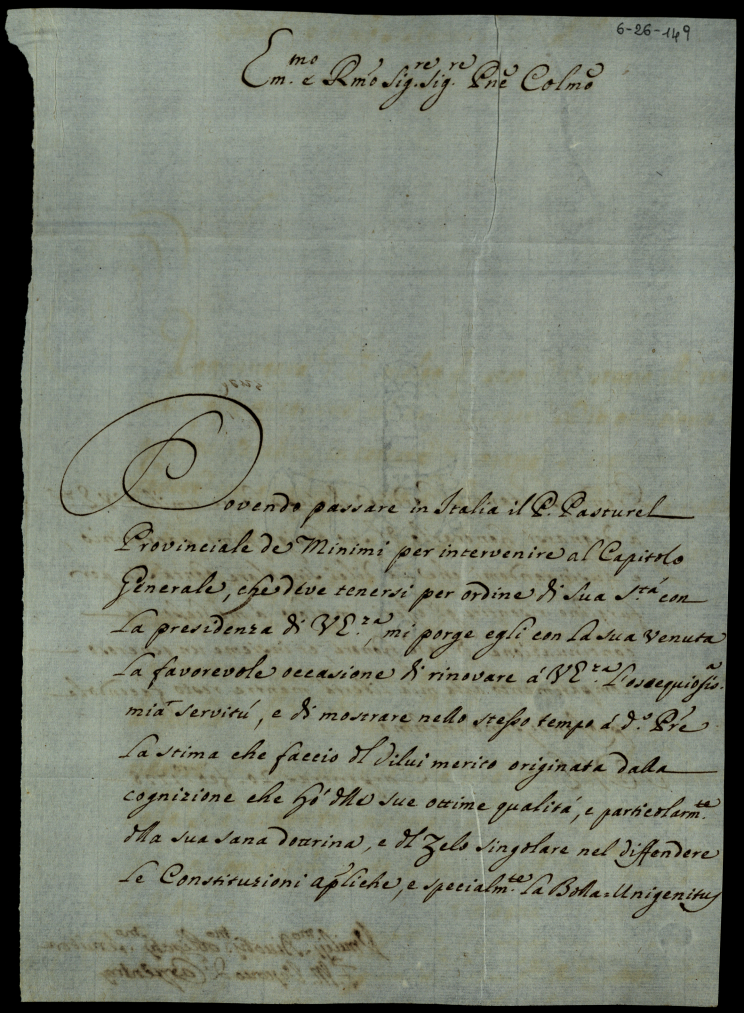 6-26-149
Em.mo e Rmo Sig.re Sig.re Pne Colmo
Dovendo passare in Italia il P. Pasturel
Provinciale de Minimi per intervenire al Capitolo
Generale, che deve tenersi per ordine di Sua S.tà con
La presidenza di VE.za, mi porge egli con la sua venuta
La favorevole occasione di rinovare á VE.za L'ossequiosis.a
mia servitú, e di mostrare nello stesso tempo á d.o Pre
La stima che faccio dl dilui merito originata dalla
cognizione che hó dlle sue ottime qualitá, e particolarm.te
dlla sua sana dottrina, e dl Zelo singolare nel diffendere
Le Constituzioni apliche, e specialm.te La Bolla Unigenitus